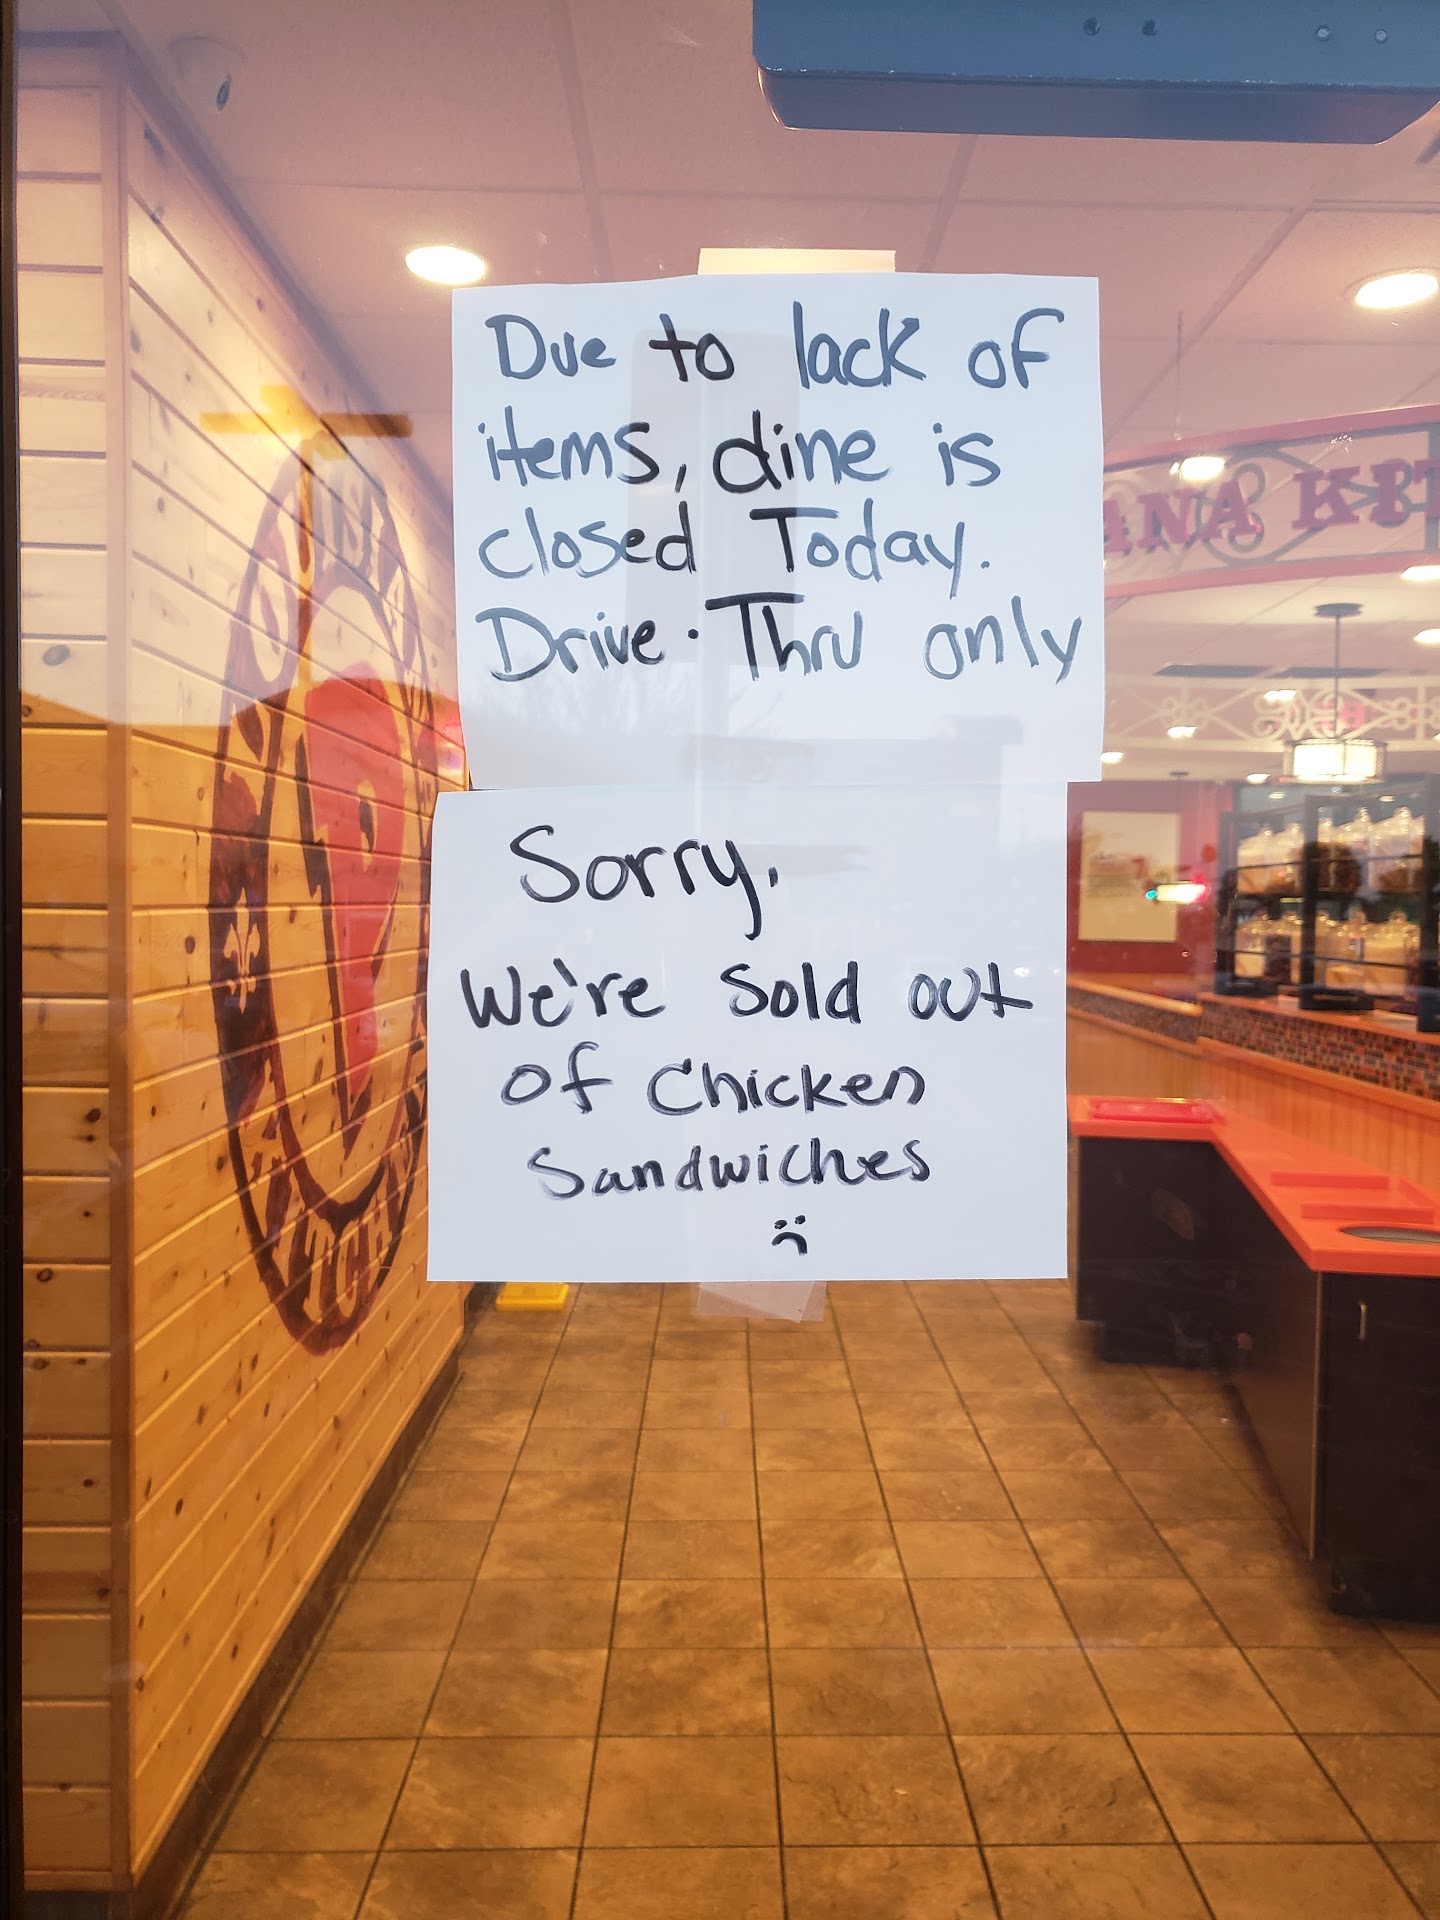 Due to lack of
items, dine is
closed Today.
Drive-Thru only
Sorry.
We're Sold out
of Chicken
Sandwiches
:(
ANA KIT